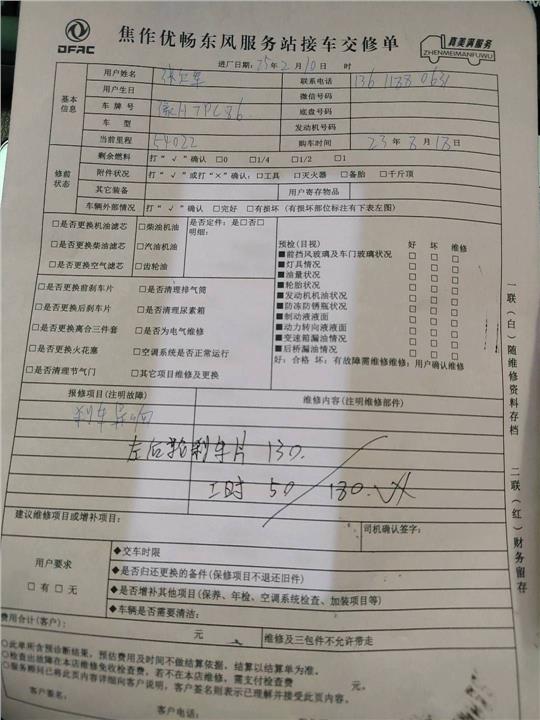 DFAC
焦作优畅东风服务站接车交修单
真美满服务
ZHENMEIMANFUWU
进厂日期：25年2月10日 时
基本信息
用户姓名 联系电话
用户生日 微信号码
车牌号 底盘号码
车型 发动机号码
当前里程 54022 购车时间 23年8月18日
修前状态
剩余燃料 打"√"确认 □0 □1/4 □1/2 □1
附件状况 打"√"或打"×"确认：□工具 □灭火器 □备胎 □千斤顶
其它装备 用户寄存物品
车辆外部情况 打"√"确认 □完好 □有损坏（有损坏部位标注有下表左图）
□是否更换机油滤芯 □柴油机油 是否定件：是□否□
□是否更换柴油滤芯 □汽油机油 明细：
□是否更换空气滤芯 □齿轮油
□是否更换前刹车片 □是否清理排气筒
□是否更换后刹车片 □是否清理尿素箱
□是否更换离合三件套 □是否为电气维修
□是否更换火花塞 □空调系统是否正常运行
□是否清理节气门 □其它项目维修及更换
预检(目视) 好 坏 维修
■前挡风玻璃及车门玻璃状况 □ □ □
■灯具情况 □ □ □
■油量状况 □ □ □
■轮胎状况 □ □ □
■发动机机油状况 □ □ □
■防冻防锈瓶状况 □ □ □
■制动液液面 □ □ □
■动力转向液液面 □ □ □
■变速箱漏油情况 □ □ □
■后桥漏油情况 □ □ □
好：合格 坏：有故障需维修维修：用户确认维修
报修项目(注明故障) 维修内容(注明维修部件)
刹车异响
左后轮刹车片 130.
工时 50 180.
建议维修项目或增补项目： 司机确认签字：
用户要求
□有 □无
◆交车时限
◆是否归还更换的备件(保修项目不退还旧件)
◆是否增补其他项目(保养、年检、空调系统检查、加装项目等)
◆车辆是否需要清洁：
费用合计(客户)： 元 维修及三包件不允许带走
○此单所含预诊断结果，预估费用及时间不做结算依据，结算以结算单为准。
○检查出故障在本店维修免收检查费，若不在本店维修，需支付检查费 元。
○服务顾问已将此页内容详细向客户说明，客户签名则表示已理解并接受此页内容。
客户签名： 客户电话：
一联（白）随维修资料存档
二联（红）财务留存